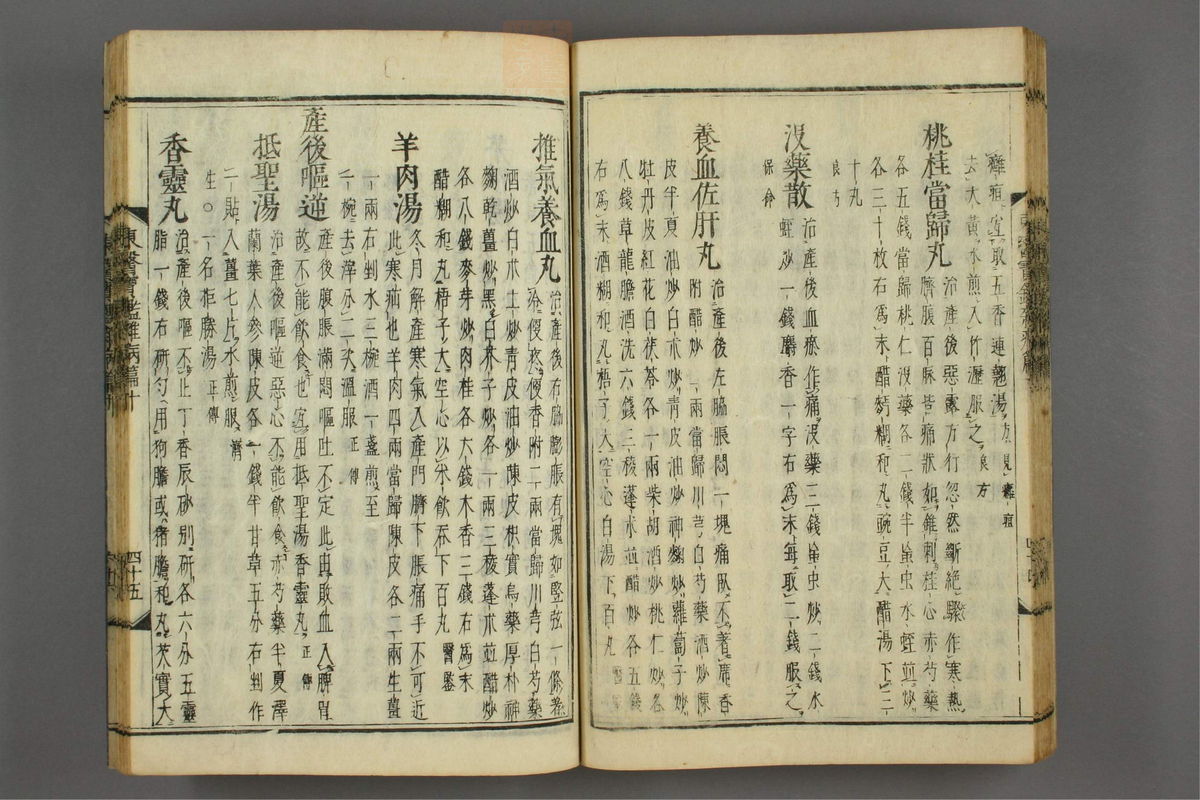 癰疽宜取五香連翹湯方見癰疽
去大黃水煎入竹瀝服之良方
桃桂當歸丸
治產後惡露方行忽然斷絶驟作寒熱
臍脹百脉皆痛狀如錐刺桂心赤芍藥
各五錢當歸桃仁沒藥各二錢半䖟虫水蛭並炒
各三十枚右爲末醋麪糊和丸豌豆大醋湯下三
十丸良方
沒藥散
治產後血瘀作痛沒藥三錢䖟虫炒二錢水
蛭炒一錢麝香一字右爲末每取二錢服之
保命
養血佐肝丸
治產後左脇脹悶一塊痛臥不著席香
附醋炒二兩當歸川芎白芍藥酒炒陳
皮半夏油炒白朮炒靑皮油炒神麴炒蘿葍子炒
牡丹皮紅花白茯苓各一兩柴胡酒炒桃仁炒各
八錢草龍膽酒洗六錢三稜蓬朮並醋炒各五錢
右爲末酒糊和丸梧子大空心白湯下百丸醫鑑
推氣養血丸
治產後右脇膨脹有塊如竪弦一條
疼㾓香附二兩當歸川芎白芍藥
酒炒白朮土炒靑皮油炒陳皮枳實烏藥厚朴神
麴乾薑炒黑白芥子炒各一兩三稜蓬朮並醋炒
各八錢麥芽炒肉桂各六錢木香三錢右爲末
醋糊和丸梧子大空心以米飮吞下百丸醫鑑
羊肉湯
冬月解產寒氣入產門臍下脹痛手不可近
此寒疝也羊肉四兩當歸陳皮各二兩生薑
一兩右剉水三椀酒一盞煎至
一椀去滓分二次溫服正傳
產後嘔逆
產後腹脹滿悶嘔吐不定此由敗血入脾胃
故不能飮食也宜用抵聖湯香靈丸正傳
抵聖湯
治產後嘔逆惡心不能飮食赤芍藥半夏澤
蘭葉人參陳皮各一錢半甘草五分右剉作
一貼入薑七片水煎服濟
生○一名柜勝湯正傳
香靈丸
治產後嘔不止丁香辰砂別硏各六分五靈
脂一錢右硏勻用狗膽或猪膽和丸芡實大
東醫寶鑑雜病篇十
四十五